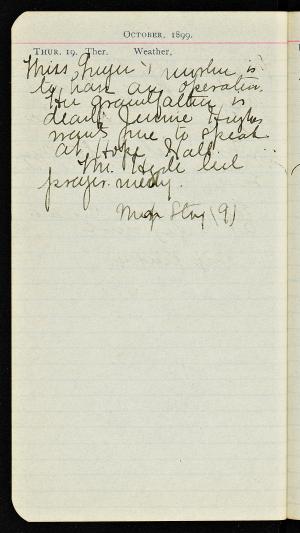 October, 1899.
Thur. 19. Ther. Weather.
Miss
to have an operation.
Her grandfather is
dead. Jennie Hughes
wants me to speak
at Hope Hall.
Mr. Hyde led
prayer
(9)